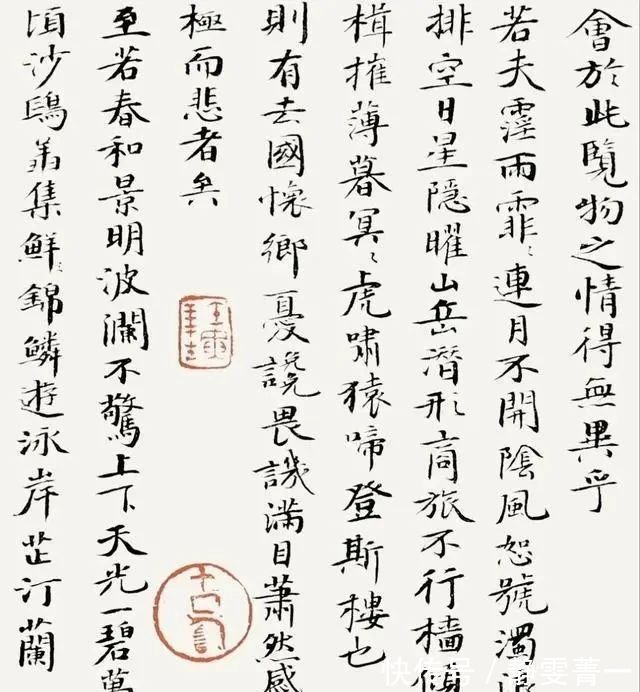 會於此覽物之情得無異乎
若夫霪雨霏〻連月不開陰風恕號濁
排空日星隱曜山岳潛形商旅不行檣傾
楫摧薄暮冥〻虎嘯猿啼登斯樓也
則有去國懷鄉憂讒畏譏滿目蕭然感
極而悲者矣
至若春和景明波瀾不驚上下天光一碧萬
頃沙鷗翔集鮮〻錦鱗遊泳岸芷汀蘭
快传号 / 雯菁一